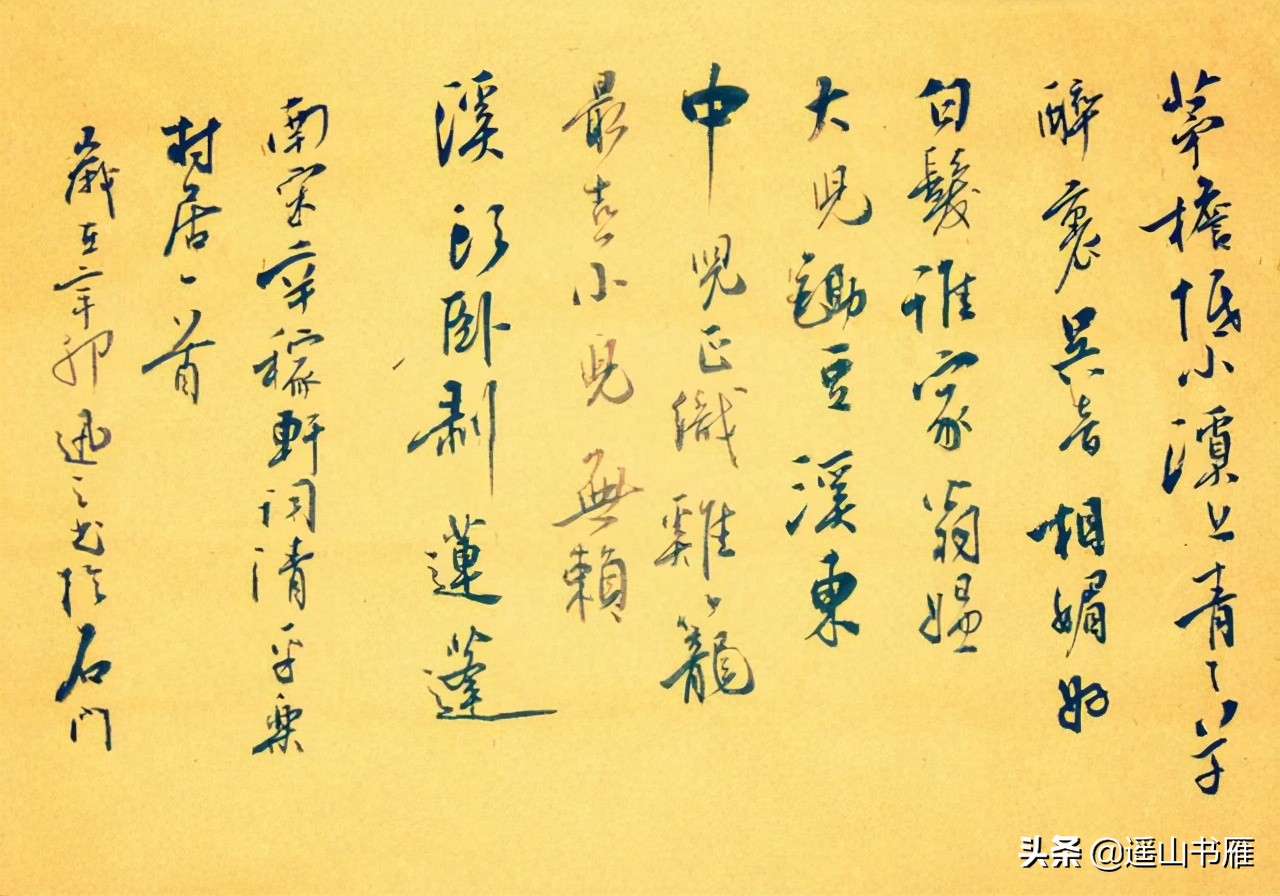 茅檐低小溪上青々草
醉裏吳音相媚好
白髮誰家翁媼
大兒鋤豆溪東
中兒正織雞籠
最喜小兒無賴
溪头臥剝蓮蓬
南宋辛稼軒詞清平樂
村居一首
歲在辛卯迅之书於石門
头条 @遥山书雁